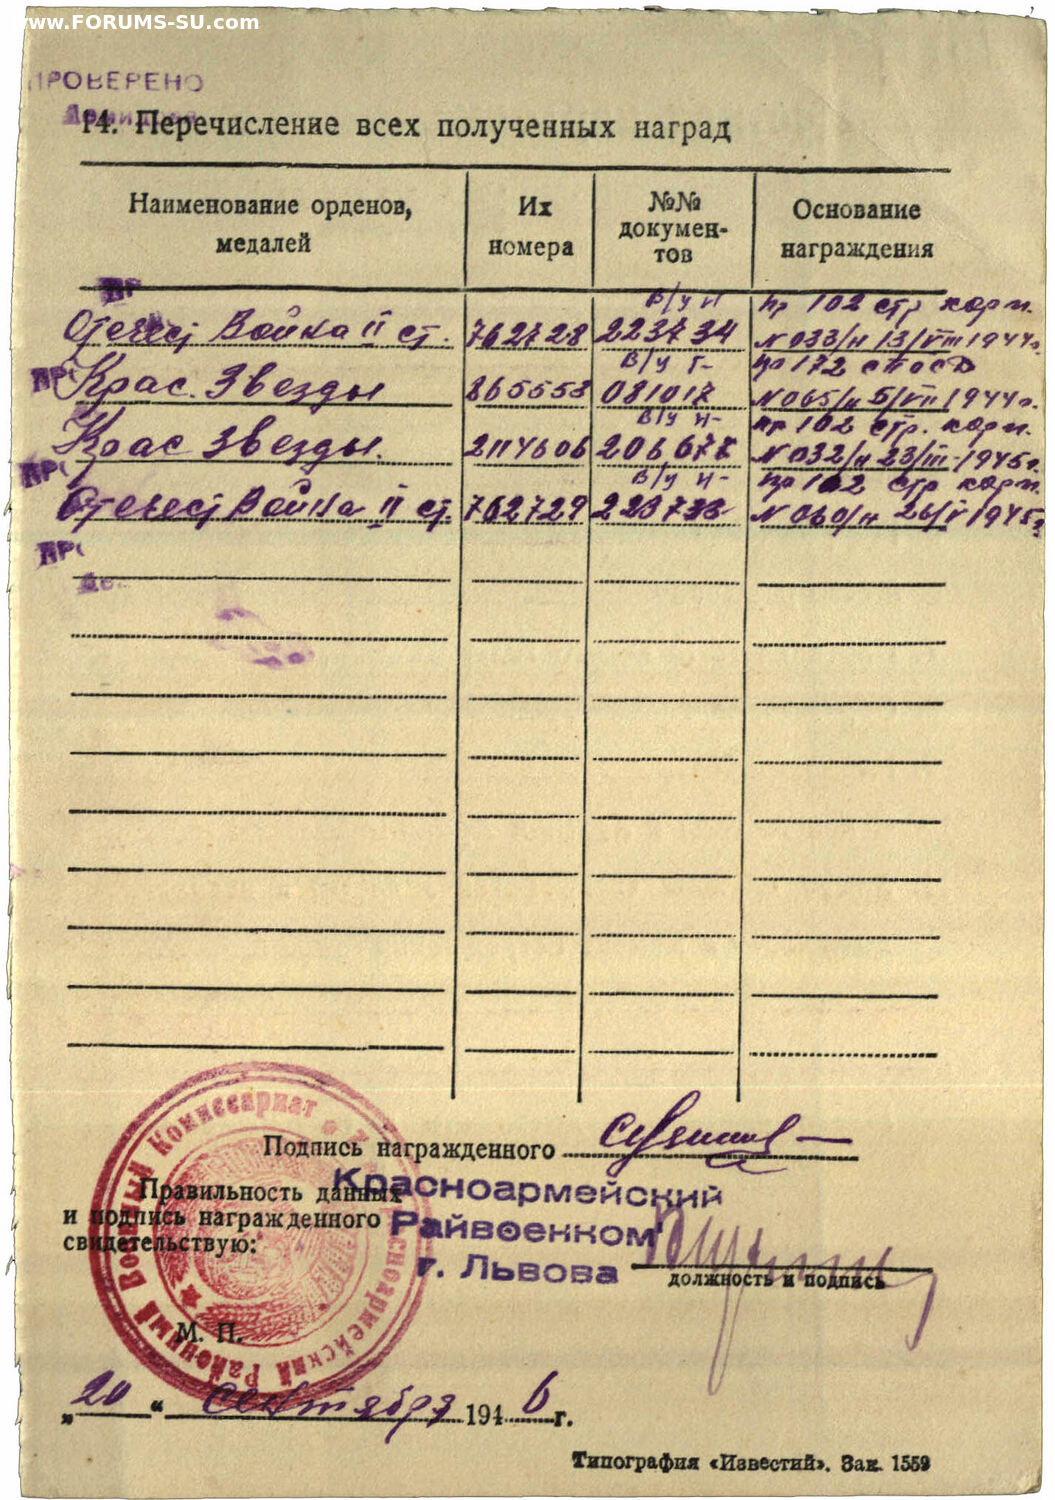 www.FORUMS-SU.com
ПРОВЕРЕНО
14. Перечисление всех полученных наград
Наименование орденов, медалей
Их номера
№№ докумен-тов
Основание награждения
В/у И пр 102 стр корп.
Отечест Война II ст. 762728 223734 N 033/н 13/VIII 1944г.
В/у Г- пр 172
Крас. Звезды 865553 081017 N 065/н 5/VII 1944г.
В/у И- пр 102 стр. корп.
Крас Звезды. 2114606 N 032/н 23/III-1945г.
В/у И- пр 102 стр корп.
Отечест Война II ст. 762729 N 060/н 26/V 1945г.
Подпись награжденного
Правильность данных
и подпись награжденного
свидетельствую:
Красноармейский
Райвоенком
г. Львова
должность и подпись
Красноармейский Районный Военный Комиссариат
М. П.
„20“ сентября 1946 г.
Типография «Известий». Зак. 1559